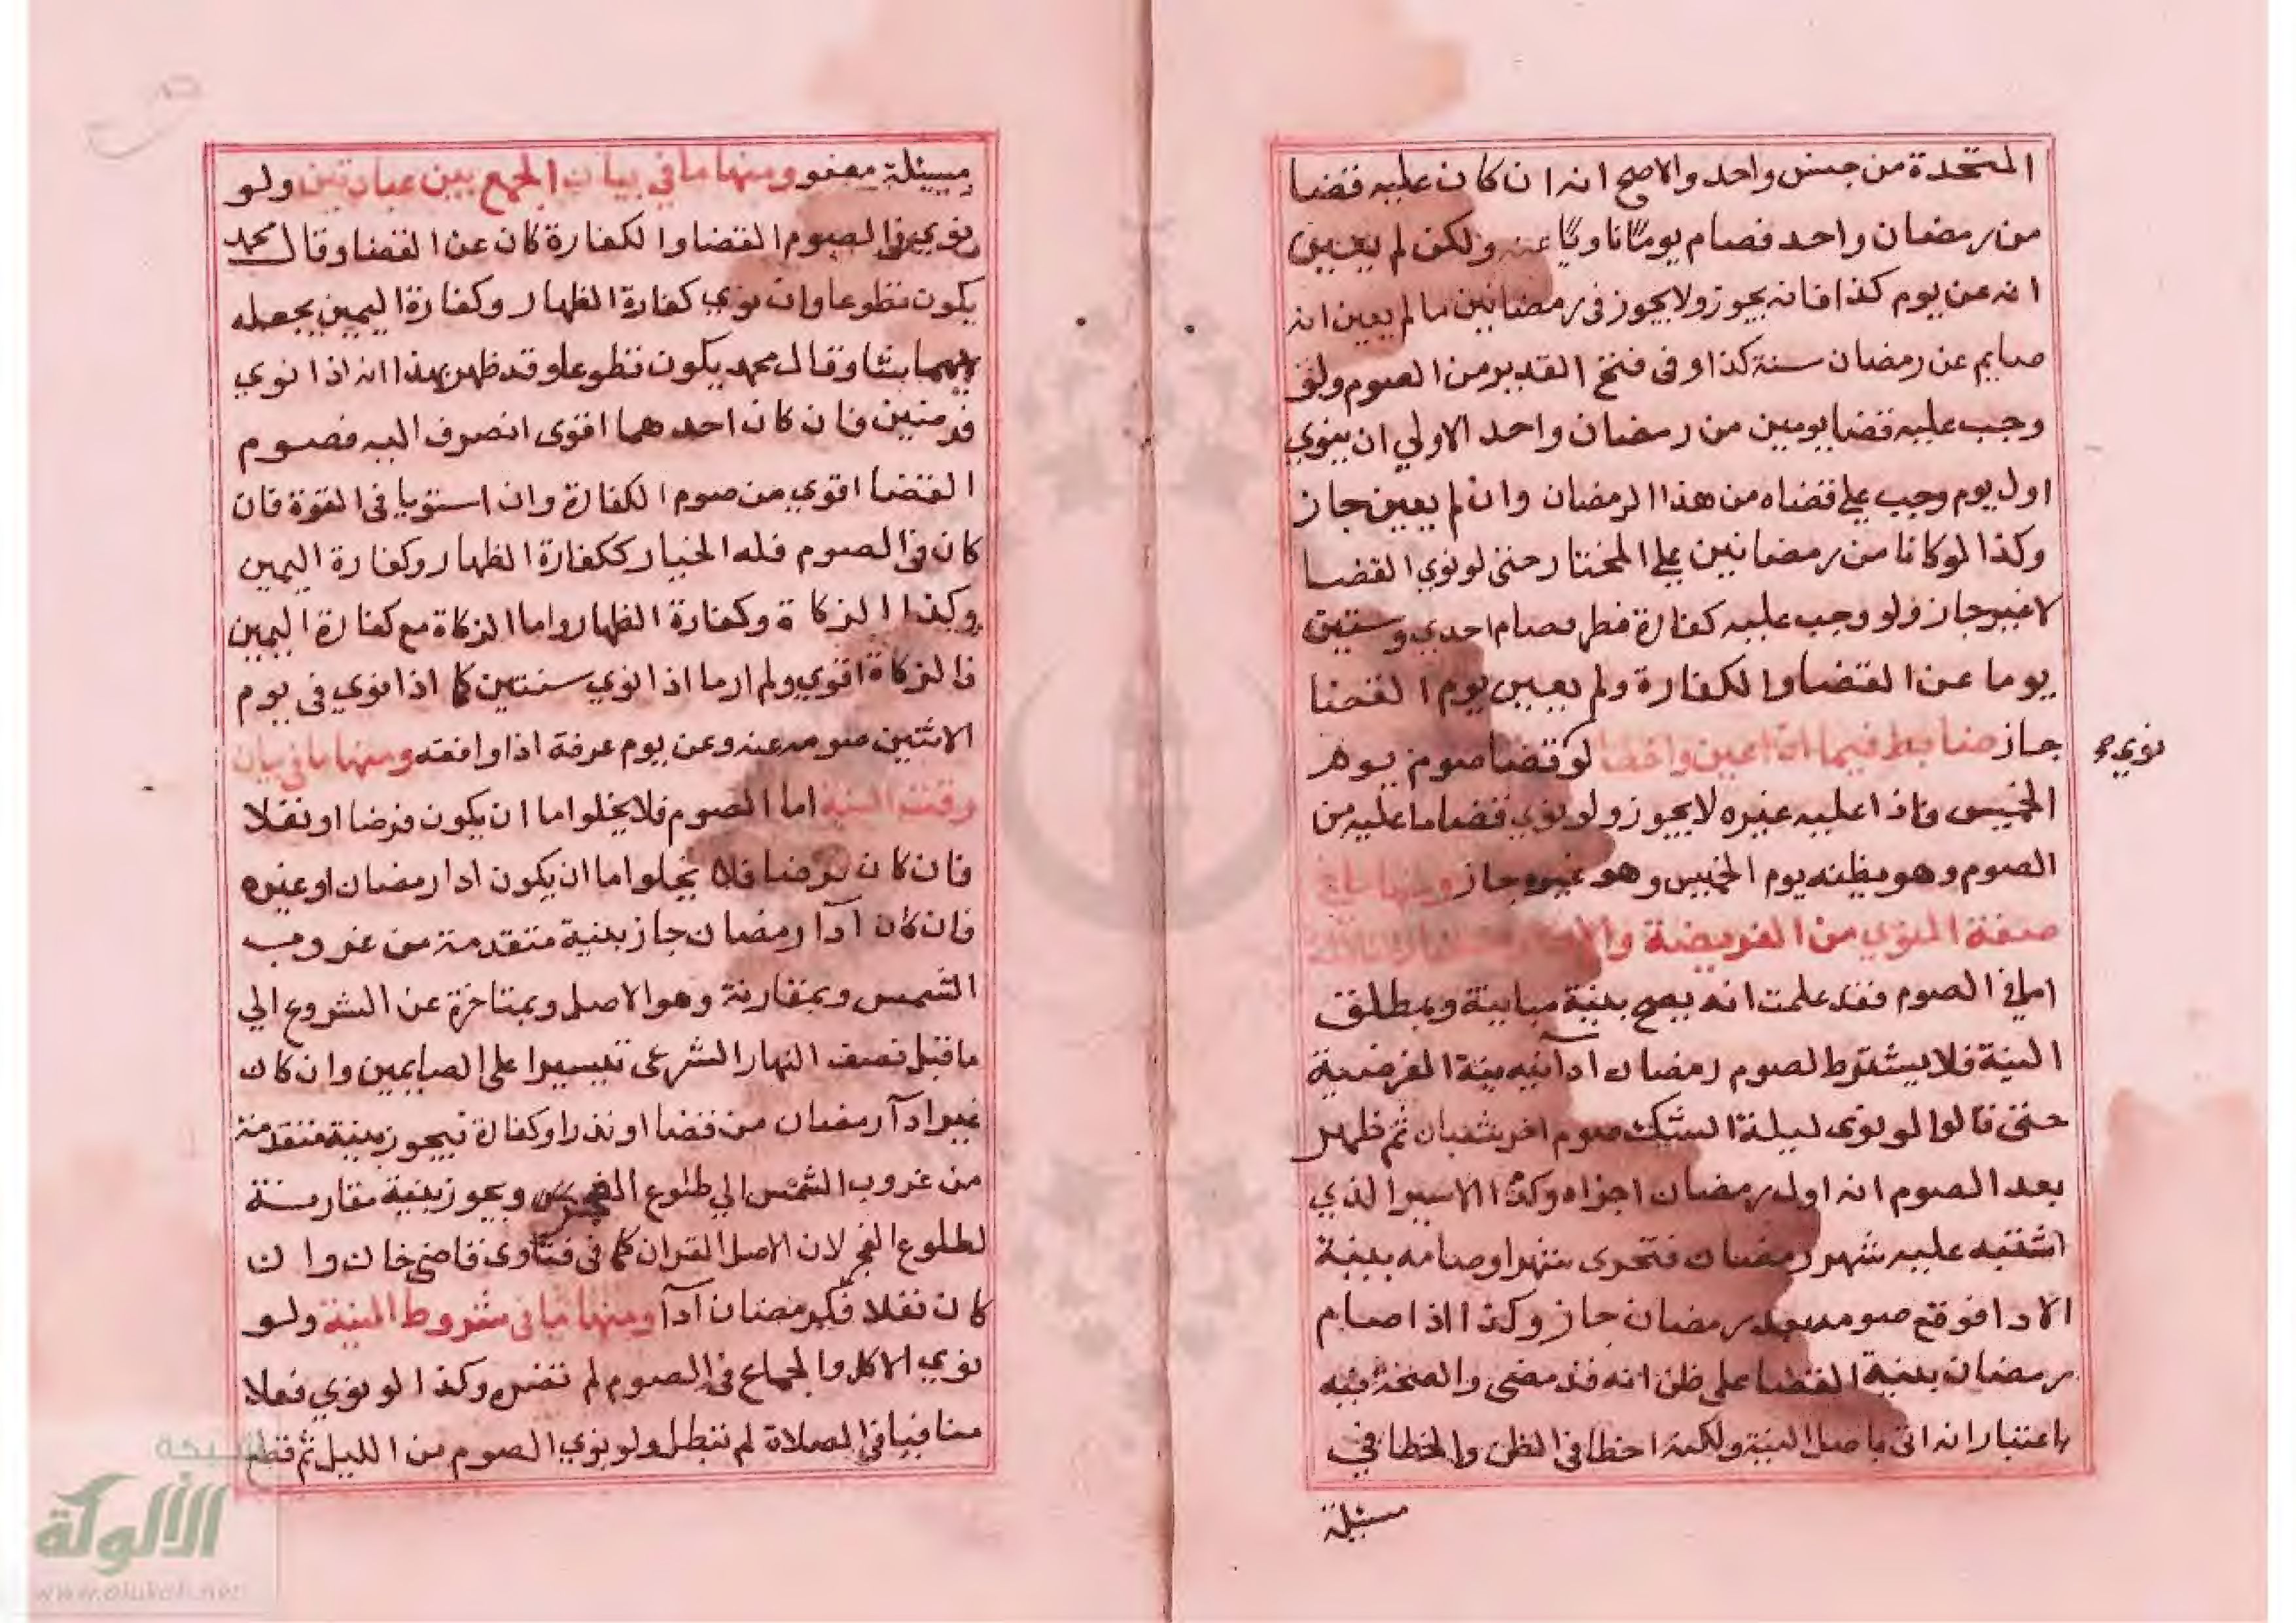 المتحدة من جنس واحد والاصح انه ان كان عليه قضا
من رمضان واحد فصام يوما ناويا عنه ولكن لم يعين
انه عن يوم كذا فانه يجوز ولا يجوز في رمضانين ما لم يعين انه
صايم عن رمضان سنة كذا وفي فتح القدير من الصوم ولو
وجب عليه قضا يومين من رمضان واحد الاولي ان ينوي
اول يوم وجب علي قضاه من هذا الرمضان وان لم يعين جاز
وكذا لو كانا من رمضانين علي المختار حتي لو نوي القضا
لا غير جاز ولو وجب عليه كفارة فطر فصام احدي وستين
يوما عن القضا والكفارة ولم يعين يوم القضا
جاز ضابط فيما اذا عين واخطا لو قضا صوم يوم
نوي
الخميس فاذا عليه غيره لا يجوز ولو نوي قضا ما عليه من
الصوم وهو يظنه يوم الخميس وهو غيره جاز ومنها ما في
صفة المنوي من الفريضة
اما في الصوم فقد علمت انه يصح بنية مباينة وبمطلق
النية فلا يشترط لصوم رمضان ادآ نية الفرضية
حتي قالوا لو نوى ليلة الشك صوم اخر شعبان ثم ظهر
بعد الصوم انه اول رمضان اجزاه وكذا الاسير الذي
اشتبه عليه شهر رمضان فتحرى شهرا وصامه بنية
الادا فوقع صومه بعد رمضان جاز وكذا اذا صام
رمضان بنية القضا علي ظن انه قد مضى والصحة فيه
باعتبار انه اتى باصل النية ولكنه اخطا في الظن والخطا في
مسئلة
مسئلة معفو ومنها ما في بيان الجمع بين عبادتين ولو
نوي في الصوم القضا والكفارة كان عن القضا وقال محمد
يكون تطوعا وان نوي كفارة الظهار وكفارة اليمين يجعله
لايهما شا وقال محمد يكون تطوعا وقد ظهر بهذا انه اذا نوي
فرضين فان كان احدهما اقوى انصرف اليه فصوم
القضا اقوي من صوم الكفارة وان استويا في القوة فان
كان في الصوم فله الخيار ككفارة الظهار وكفارة اليمين
وكذا الزكاة وكفارة الظهار واما الزكاة مع كفارة اليمين
فالزكاة اقوي ولم ار ما اذا نوي سنتين كما اذا نوي في يوم
الاثنين صومه عنه وعن يوم عرفة اذا وافقته ومنها ما في بيان
وقت النية اما الصوم فلا يخلوا اما ان يكون فرضا او نفلا
فان كان فرضا فلا يخلوا اما ان يكون ادا رمضان او غيره
فان كان ادآ رمضان جاز بنية متقدمة من غروب
الشمس وبمقارنة وهو الاصل وبمتاخرة عن الشروع الي
ما قبل نصف النهار الشرعى تيسيرا على الصايمين وان كان
غير ادآ رمضان من قضا او نذر او كفارة فيجوز بنية متقدمة
من غروب الشمس الي طلوع الفجر ويجوز بنية مقارنة
لطلوع الفجر لان الاصل القران كما في فتاوى قاضى خان وان
كان نفلا فكرمضان ادآ ومنها ما في شروط النية ولو
نوي الاكل والجماع في الصوم لم تضره وكذا لو نوي فعلا
منافيا في الصلاة لم تبطل ولو نوي الصوم من الليل ثم قطع
شبكة
الألوكة
www.alukah.net